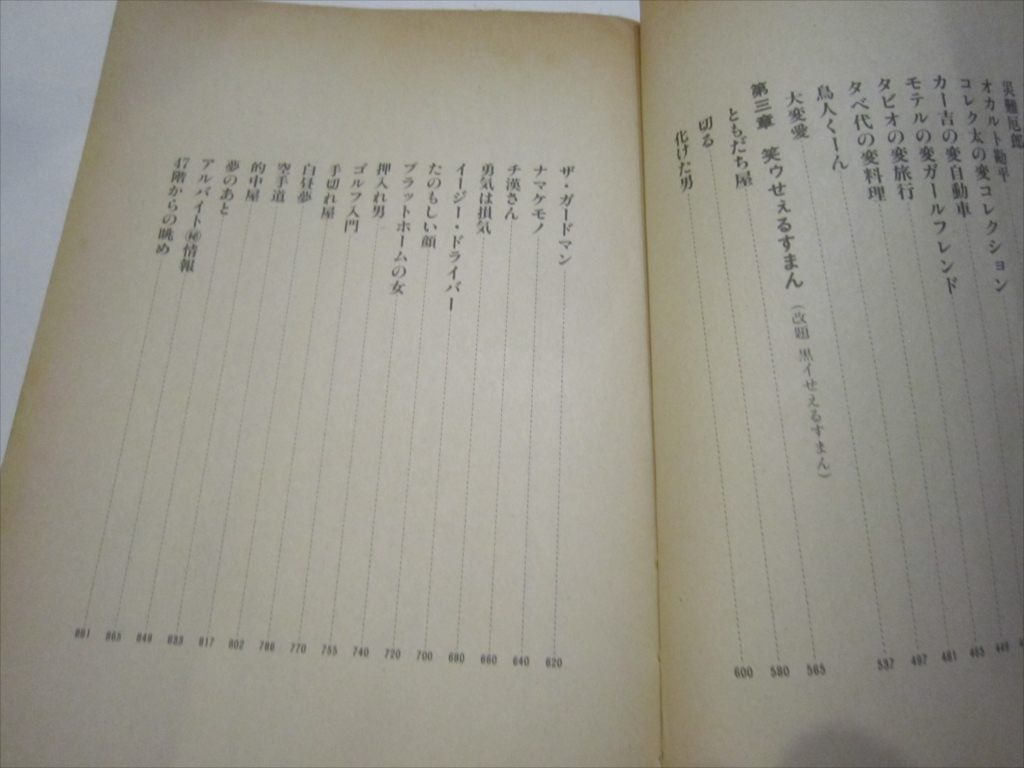 災難厄郎
オカルト勘平
コレク太の変コレクション
カー吉の変自動車
モテルの変ガールフレンド 449
タビオの変旅行
タベ代の変料理 481
鳥人くーん 497
大変愛 537
第三章 笑ゥせぇるすまん (改題 黒イせえるすまん)
ともだち屋 565
切る 580
化けた男 600
ザ・ガードマン 620
ナマケモノ 640
チ漢さん 660
勇気は損気 680
イージー・ドライバー 700
たのもしい顔 720
プラットホームの女 740
押入れ男 755
ゴルフ入門 770
手切れ屋 786
白昼夢 802
空手道 817
的中屋 833
夢のあと 849
アルバイト㊙情報 865
47階からの眺め 881